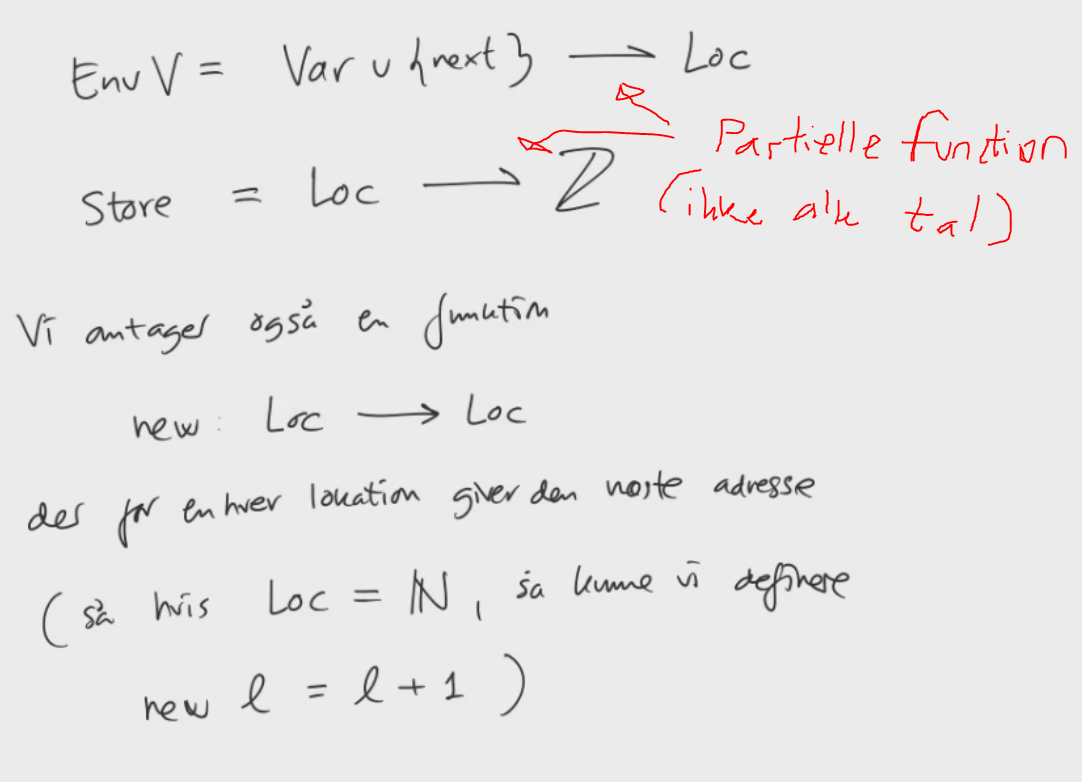 EnvV = Var ∪ {next} → Loc
Store = Loc → ℤ
Partielle function
(ikke alle tal)
Vi antager også en funktion
new: Loc → Loc
der for enhver lokation giver den næste adresse
(så hvis Loc = ℕ, så kunne vi definere
new l = l + 1)